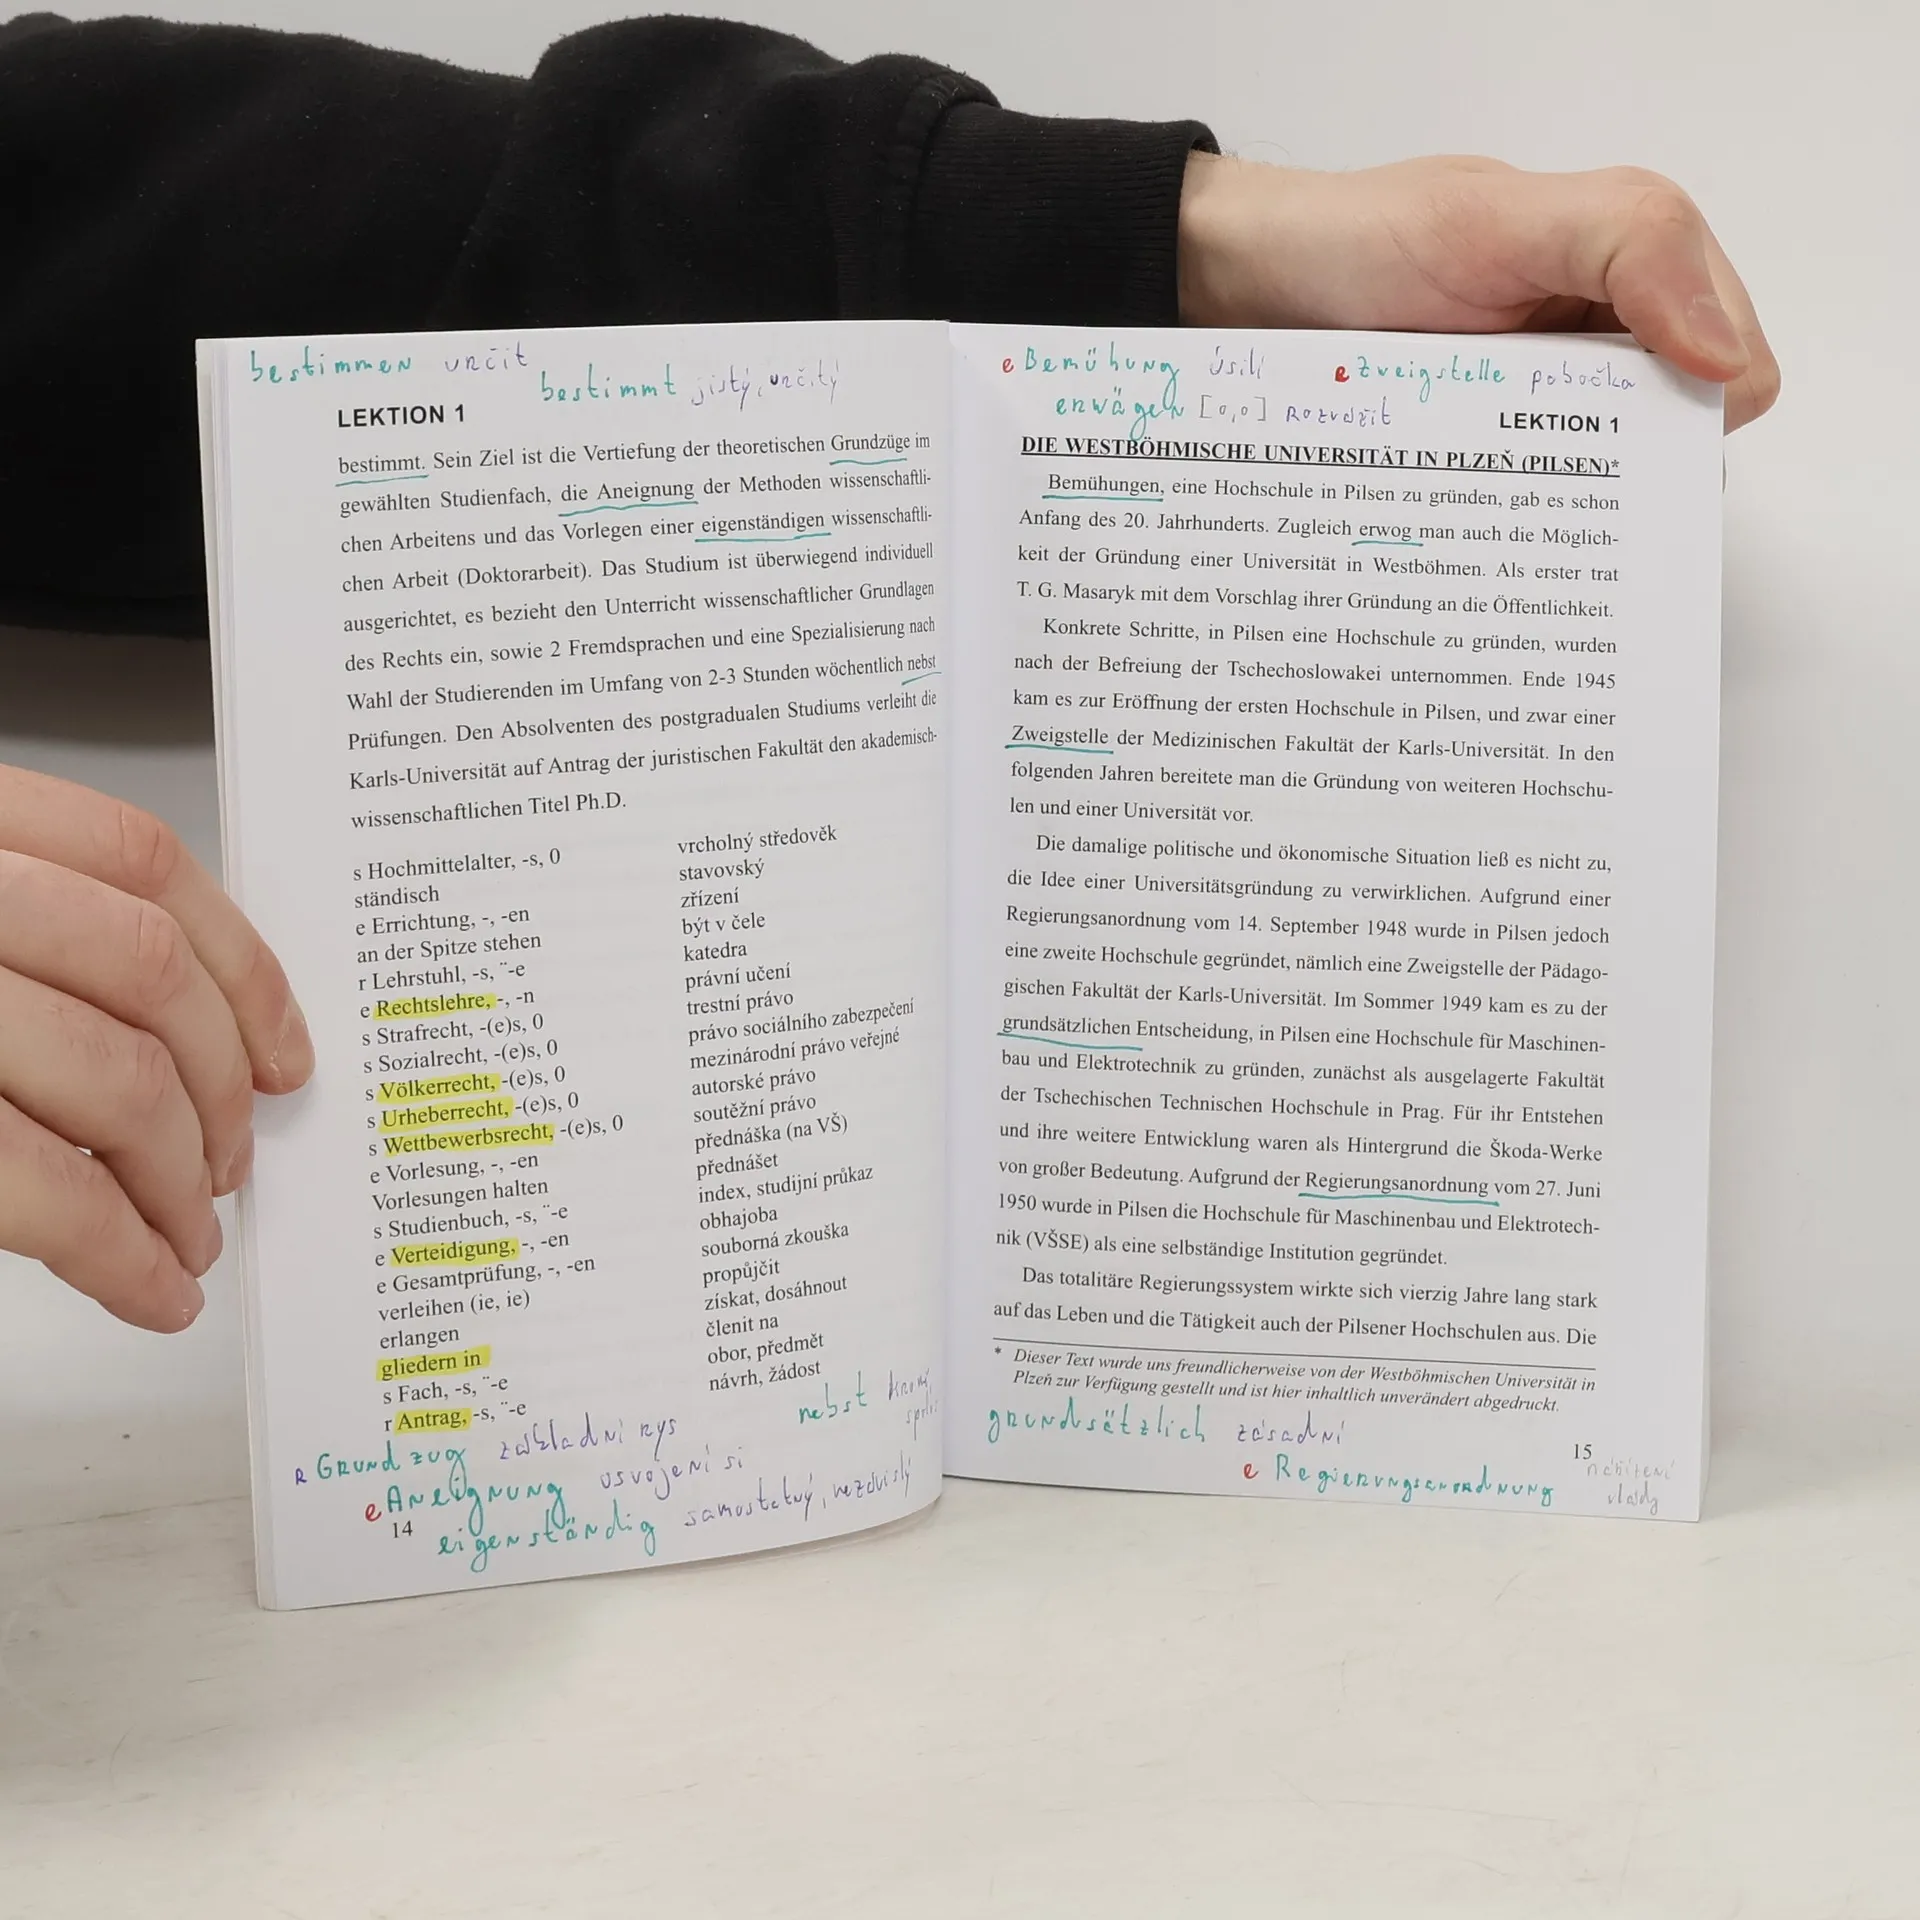 bestimmen určit
bestimmt jistý, určitý
LEKTION 1
bestimmt. Sein Ziel ist die Vertiefung der theoretischen Grundzüge im
gewählten Studienfach, die Aneignung der Methoden wissenschaftli-
chen Arbeitens und das Vorlegen einer eigenständigen wissenschaftli-
chen Arbeit (Doktorarbeit). Das Studium ist überwiegend individuell
ausgerichtet, es bezieht den Unterricht wissenschaftlicher Grundlagen
des Rechts ein, sowie 2 Fremdsprachen und eine Spezialisierung nach
Wahl der Studierenden im Umfang von 2-3 Stunden wöchentlich nebst
Prüfungen. Den Absolventen des postgradualen Studiums verleiht die
Karls-Universität auf Antrag der juristischen Fakultät den akademisch-
wissenschaftlichen Titel Ph.D.
s Hochmittelalter, -s, 0 vrcholný středověk
ständisch stavovský
e Errichtung, -, -en zřízení
an der Spitze stehen být v čele
r Lehrstuhl, -s, ¨-e katedra
e Rechtslehre, -, -n právní učení
s Strafrecht, -(e)s, 0 trestní právo
s Sozialrecht, -(e)s, 0 právo sociálního zabezpečení
s Völkerrecht, -(e)s, 0 mezinárodní právo veřejné
s Urheberrecht, -(e)s, 0 autorské právo
s Wettbewerbsrecht, -(e)s, 0 soutěžní právo
e Vorlesung, -, -en přednáška (na VŠ)
Vorlesungen halten přednášet
s Studienbuch, -s, ¨-e index, studijní průkaz
e Verteidigung, -, -en obhajoba
e Gesamtprüfung, -, -en souborná zkouška
verleihen (ie, ie) propůjčit
erlangen získat, dosáhnout
gliedern in členit na
s Fach, -s, ¨-e obor, předmět
r Antrag, -s, ¨-e návrh, žádost
nebst
R Grundzug základní rys
e Aneignung osvojení si
eigenständig samostatný, nezávislý
14
e Bemühung úsilí
e Zweigstelle pobočka
erwägen [o,o] rozvážit
LEKTION 1
DIE WESTBÖHMISCHE UNIVERSITÄT IN PLZEŇ (PILSEN)*
Bemühungen, eine Hochschule in Pilsen zu gründen, gab es schon
Anfang des 20. Jahrhunderts. Zugleich erwog man auch die Möglich-
keit der Gründung einer Universität in Westböhmen. Als erster trat
T. G. Masaryk mit dem Vorschlag ihrer Gründung an die Öffentlichkeit.
Konkrete Schritte, in Pilsen eine Hochschule zu gründen, wurden
nach der Befreiung der Tschechoslowakei unternommen. Ende 1945
kam es zur Eröffnung der ersten Hochschule in Pilsen, und zwar einer
Zweigstelle der Medizinischen Fakultät der Karls-Universität. In den
folgenden Jahren bereitete man die Gründung von weiteren Hochschu-
len und einer Universität vor.
Die damalige politische und ökonomische Situation ließ es nicht zu,
die Idee einer Universitätsgründung zu verwirklichen. Aufgrund einer
Regierungsanordnung vom 14. September 1948 wurde in Pilsen jedoch
eine zweite Hochschule gegründet, nämlich eine Zweigstelle der Pädago-
gischen Fakultät der Karls-Universität. Im Sommer 1949 kam es zu der
grundsätzlichen Entscheidung, in Pilsen eine Hochschule für Maschinen-
bau und Elektrotechnik zu gründen, zunächst als ausgelagerte Fakultät
der Tschechischen Technischen Hochschule in Prag. Für ihr Entstehen
und ihre weitere Entwicklung waren als Hintergrund die Škoda-Werke
von großer Bedeutung. Aufgrund der Regierungsanordnung vom 27. Juni
1950 wurde in Pilsen die Hochschule für Maschinenbau und Elektrotech-
nik (VŠSE) als eine selbständige Institution gegründet.
Das totalitäre Regierungssystem wirkte sich vierzig Jahre lang stark
auf das Leben und die Tätigkeit auch der Pilsener Hochschulen aus. Die
* Dieser Text wurde uns freundlicherweise von der Westböhmischen Universität in
Plzeň zur Verfügung gestellt und ist hier inhaltlich unverändert abgedruckt.
grundsätzlich zásadní
15
e Regierungsanordnung nařízení
vlády